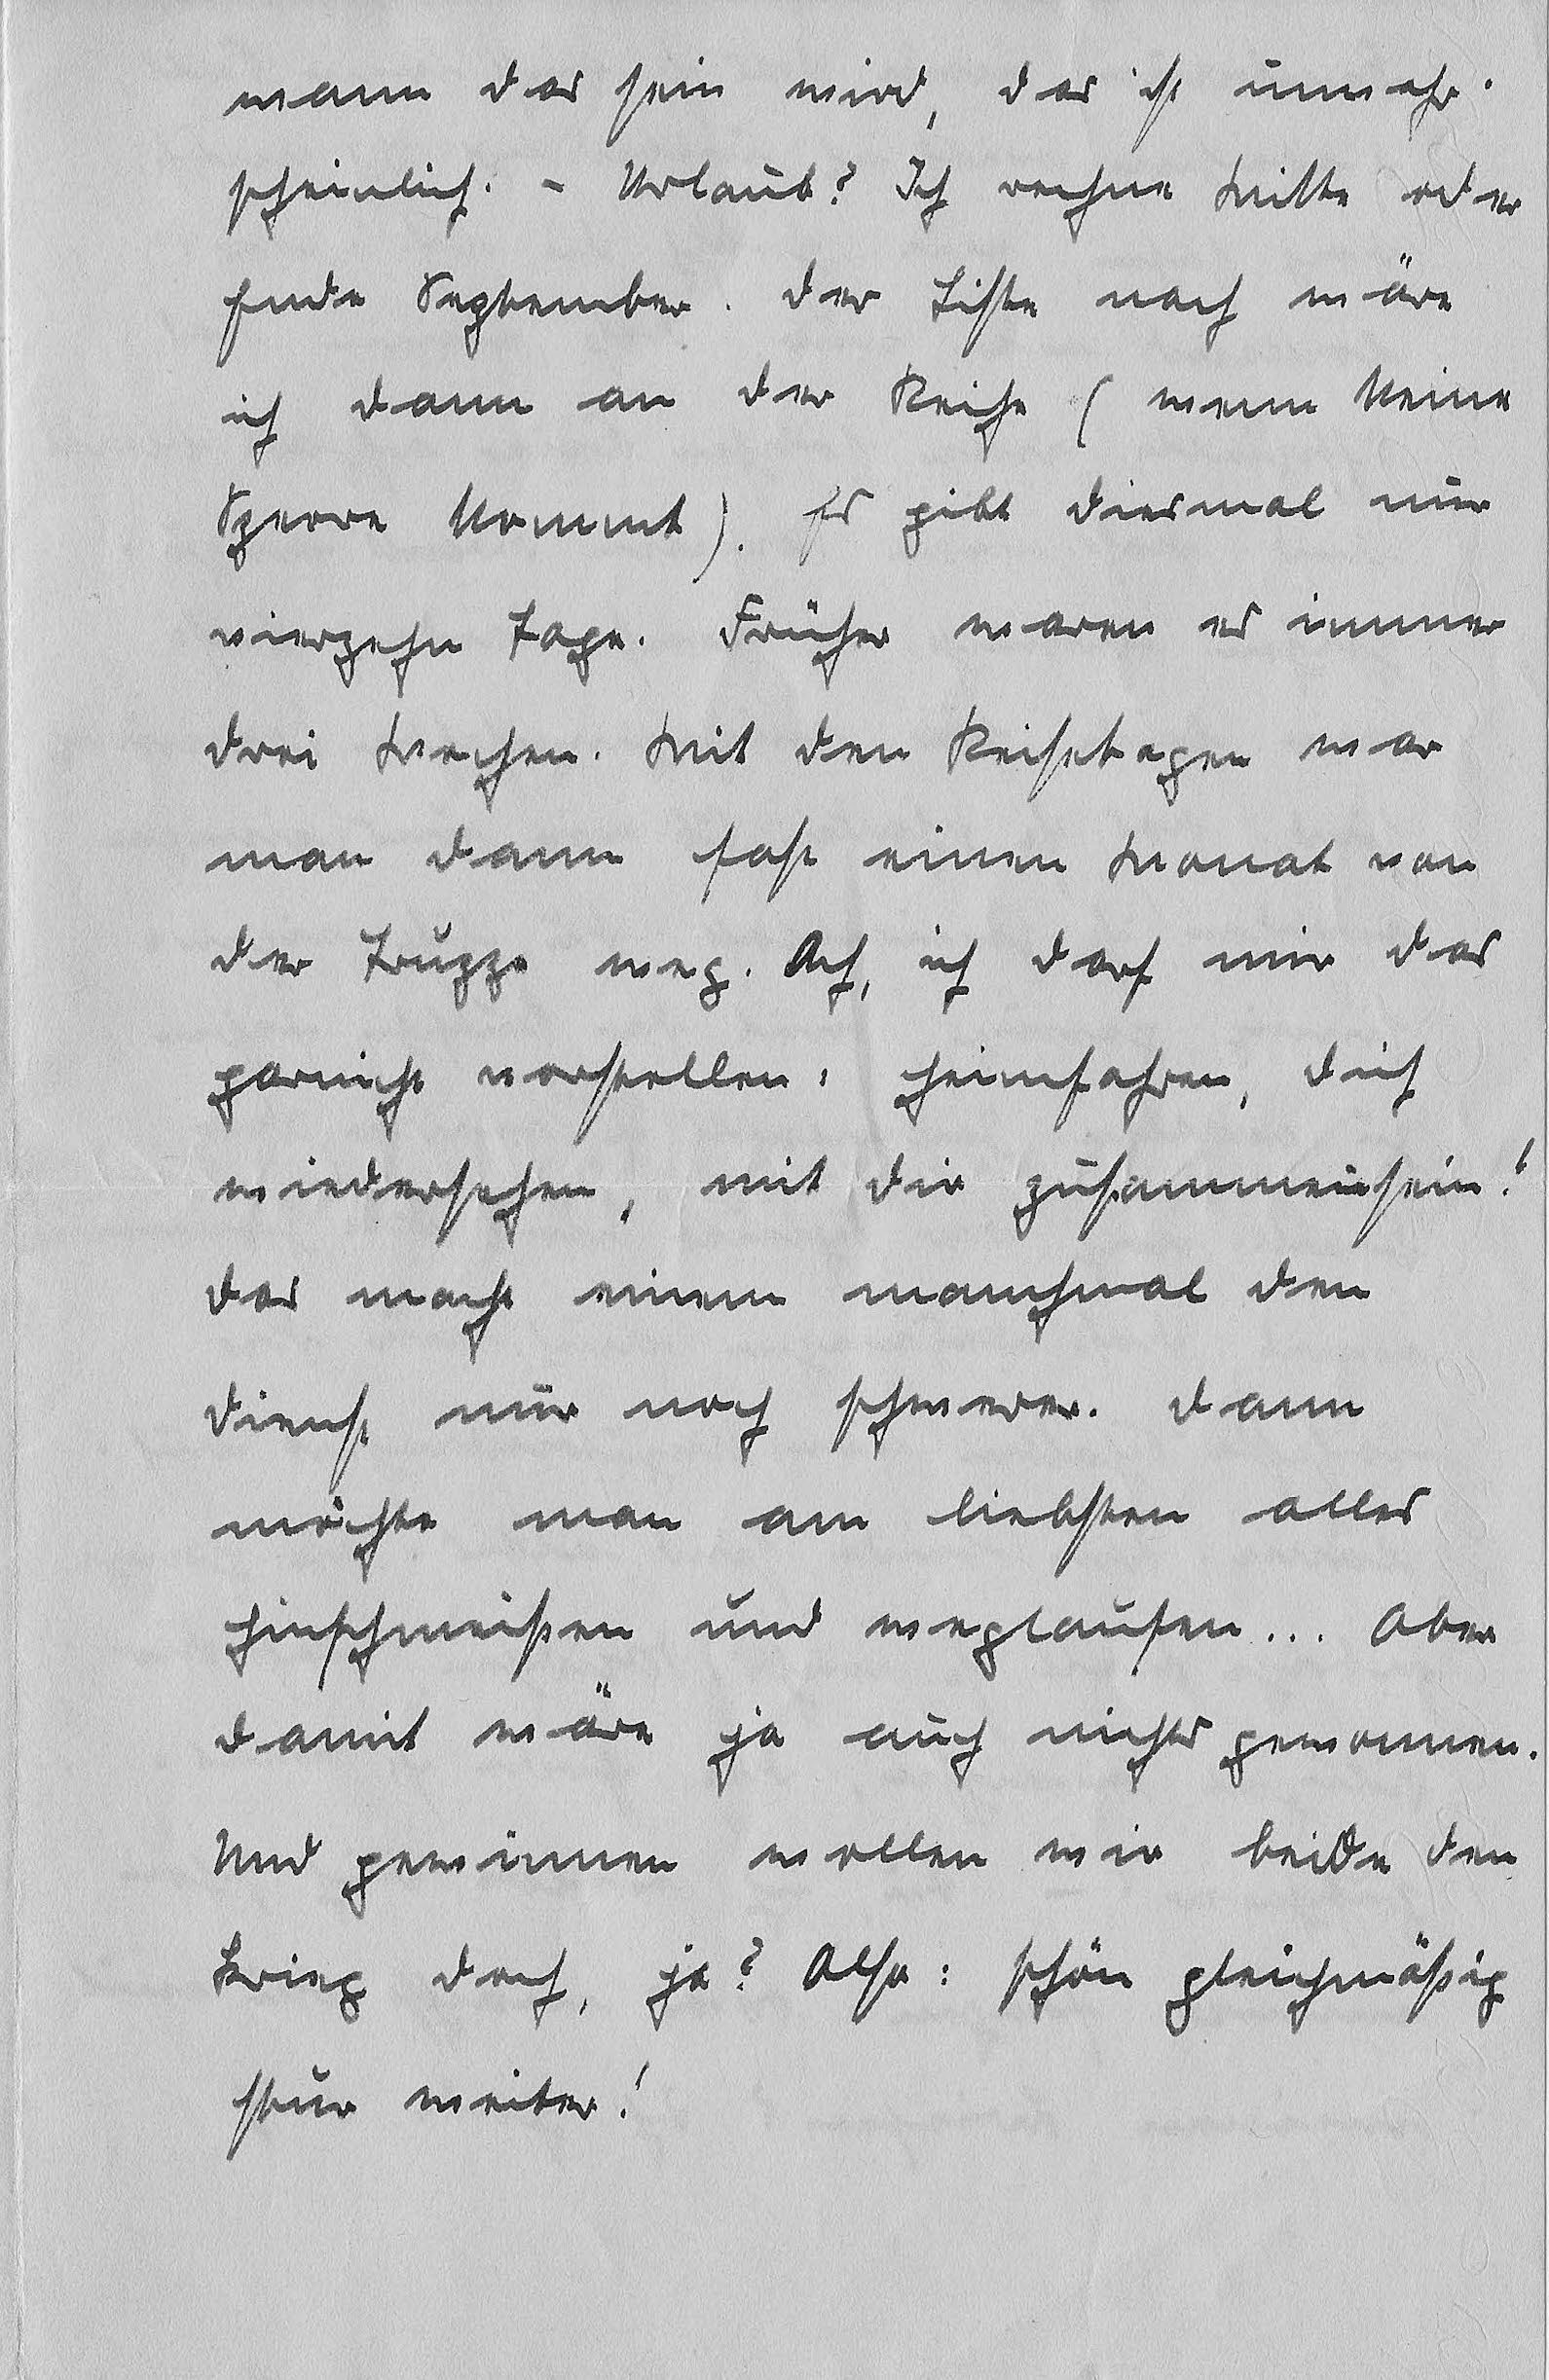 wann das sein wird, das ist unwahr-
scheinlich. - Urlaub? Ich rechne Mitte oder
Ende September. Der Liste nach wäre
ich dann an der Reihe (wenn keine
Sperre kommt). Es gibt diesmal nur
vierzehn Tage. Früher waren es immer
drei Wochen. Mit den Reisetagen war
man dann fast einen Monat von
der Truppe weg. Ach, ich darf mir das
garnicht vorstellen: heimfahren, dich
wiedersehen, mit dir zusammensein!
Das macht einem manchmal den
Dienst nur noch schwerer. Dann
möchte man am liebsten alles
hinschmeißen und weglaufen... Aber
damit wäre ja auch nichts gewonnen.
Und gewinnen wollen wir beide den
Krieg doch, ja? Also: schön gleichmäßig
stur weiter!